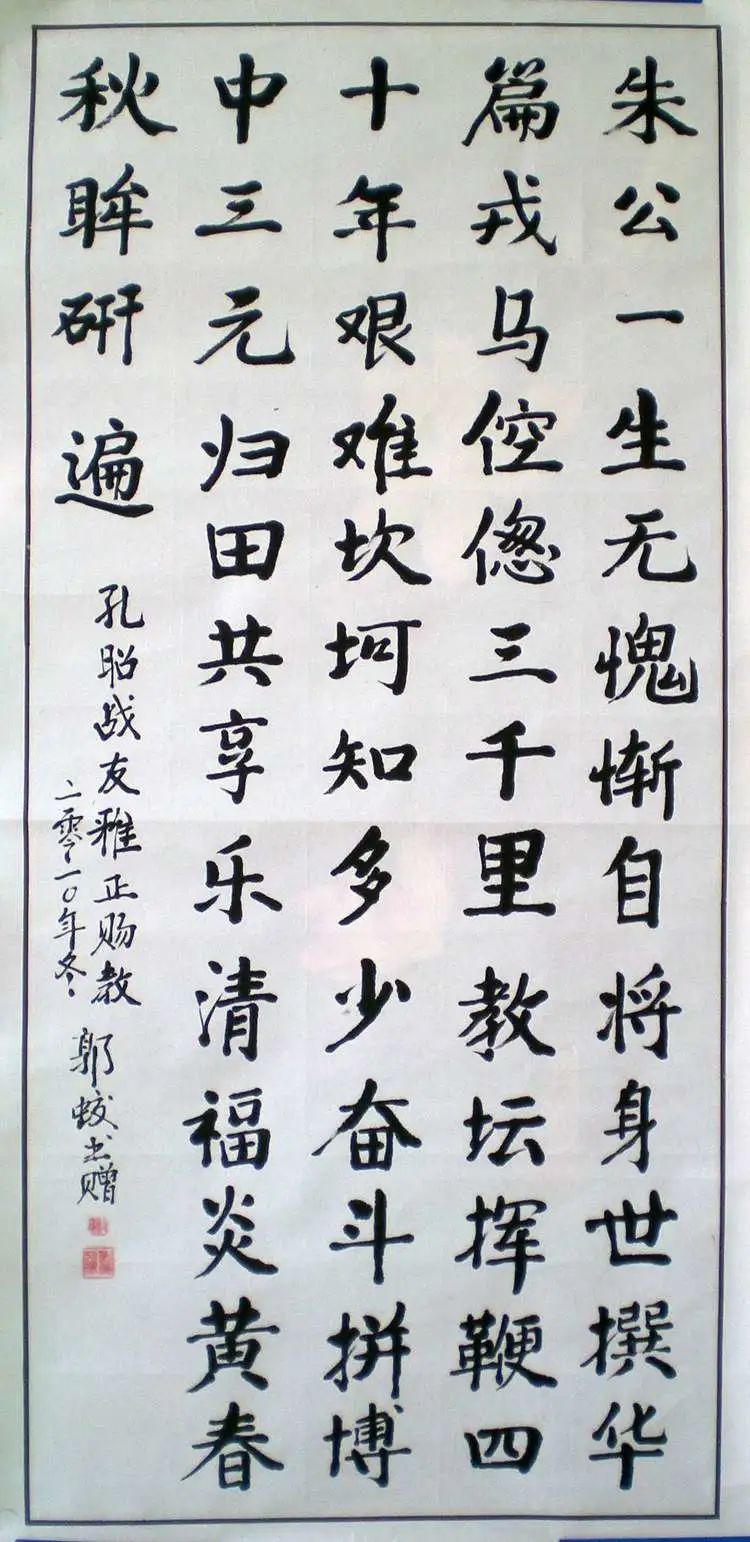 朱公一生无愧惭自将身世撰华
篇戎马倥偬三千里教坛挥鞭四
十年艰难坎坷知多少奋斗拼博
中三元归田共享乐清福炎黄春
秋眸研遍
孔昭战友雅正赐教
二零一〇年冬
郭蛟书赠